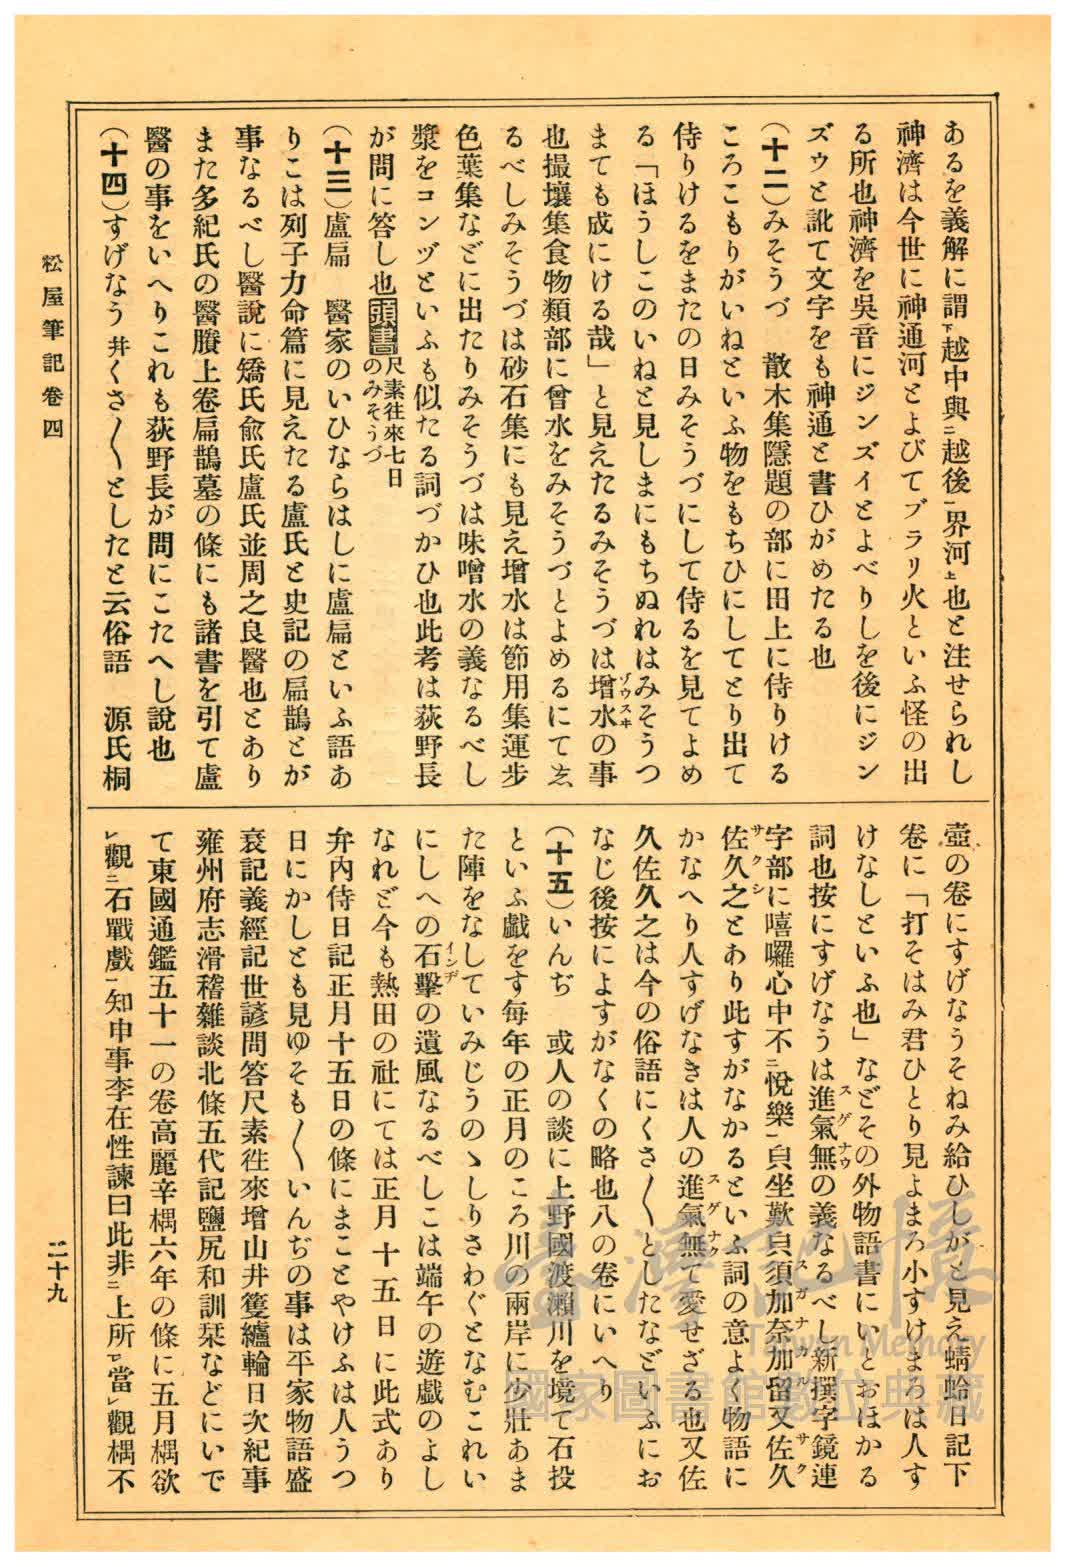 あるを義解に謂下越中與二越後一界河上也と注せられし
神濟は今世に神通河とよびてブラリ火といふ怪の出
る所也神濟を吳音にジンズイとよべりしを後にジン
ズウと訛て文字をも神通と書ひがめたる也
(十二)みそうづ　散木集隱題の部に田上に侍りける
ころこもりがいねといふ物をもちひにしてとり出て
侍りけるをまたの日みそうづにして侍るを見てよめ
る「ほうしこのいねと見しまにもちぬれはみそうつ
まても成にける哉」と見えたるみそうづは增水ゾウスヰの事
也撮壤集食物類部に曾水をみそうづとよめるにてゑ
るべしみそうづは砂石集にも見え增水は節用集運步
色葉集などに出たりみそうづは味噌水の義なるべし
漿をコンヅといふも似たる詞づかひ也此考は荻野長
が問に答し也頭書尺素往來七日のみそうづ
(十三)盧扁　醫家のいひならはしに盧扁といふ語あ
りこは列子力命篇に見えたる盧氏と史記の扁鵲とが
事なるべし醫說に矯氏兪氏盧氏並周之良醫也とあり
また多紀氏の醫賸上卷扁鵲墓の條にも諸書を引て盧
醫の事をいへりこれも荻野長が問にこたへし說也
(十四)すげなう井くさ〳〵としたと云俗語　源氏桐
壺の卷にすげなうそねみ給ひしがと見え蜻蛉日記下
卷に「打そはみ君ひとり見よまろ小すけまろは人す
けなしといふ也」などその外物語書にいとおほかる
詞也按にすげなうは進氣無スゲナウの義なるべし新撰字鏡連
字部に嘻囉心中不二悅樂一㒵坐歎㒵須加奈加留スガナカル又佐久サク
佐久之サクシとあり此すがなかるといふ詞の意よく物語に
かなへり人すげなきは人の進氣無スゲナクて愛せざる也又佐
久佐久之は今の俗語にくさ〳〵としたなどいふにお
なじ後按によすがなくの略也八の卷にいへり
(十五)いんぢ　或人の談に上野國渡瀨川を境て石投
といふ戲をす每年の正月のころ川の兩岸に少壯あま
た陣をなしていみじうのゝしりさわぐとなむこれい
にしへの石擊インヂの遺風なるべしこは端午の遊戲のよし
なれど今も熱田の社にては正月十五日に此式あり
弁內侍日記正月十五日の條にまことやけふは人うつ
日にかしとも見ゆそも〳〵いんぢの事は平家物語盛
衰記義經記世諺問答尺素往來增山井簺纑輪日次紀事
雍州府志滑稽雜談北條五代記鹽尻和訓栞などにいで
て東國通鑑五十一の卷高麗辛楀六年の條に五月楀欲
レ觀二石戰戲一知申事李在性諫曰此非二上所一レ當レ觀楀不
松屋筆記卷四
二十九
臺灣記憶
Taiwan Memory
國家圖書館數位典藏